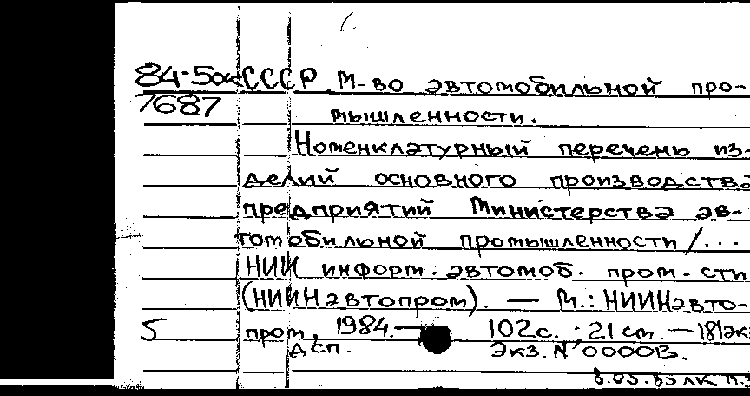 84-5
СССР М-во автомобильной про-
7687
мышленности.
Номенклатурный перечень из-
делий основного производства
предприятий Министерства ав-
томобильной промышленности /...
НИИ информ. автомоб. пром-сти
(НИИНавтопром). — М.: НИИНавто-
5 пром, 1984. — 102 с. ; 21 см. —
Дсп. Экз. N° 0000В.